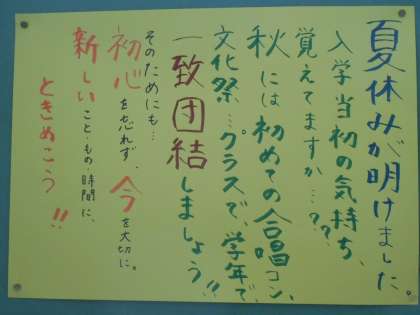 夏休みが明けました。
入学当初の気持ち、
覚えてますか…??
秋には初めての合唱コン、
文化祭…。クラスで、学年で、
一致団結しましょう!!
そのためにも…
初心を忘れず、今を大切に。
新しいこと・もの・時間に、
ときめこう!!